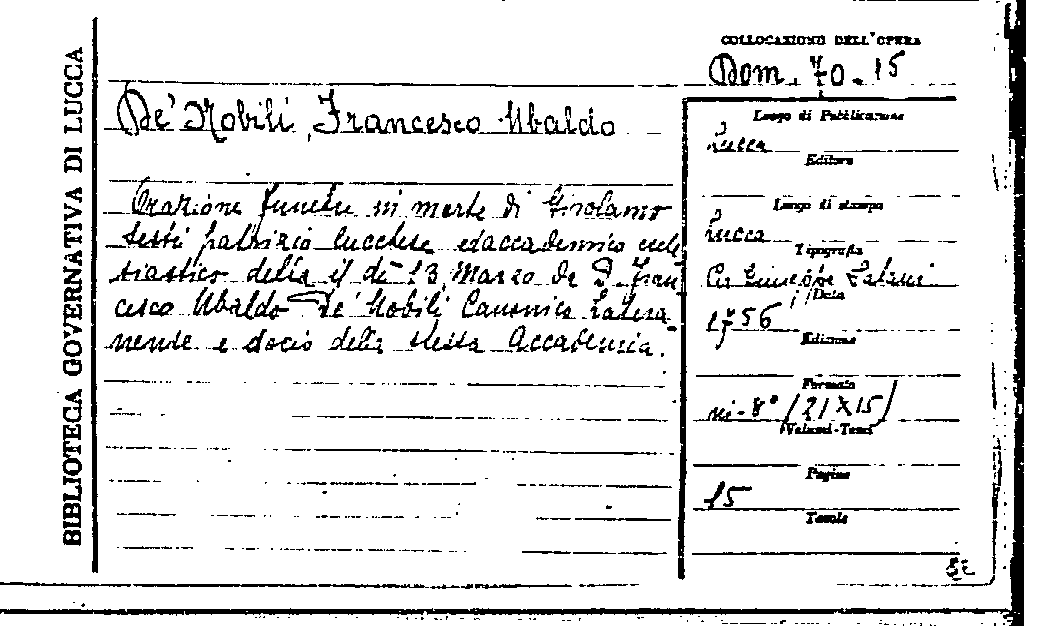 BIBLIOTECA GOVERNATIVA DI LUCCA
COLLOCAZIONE DELL'OPERA
Dom. 70.15
De' Nobili, Francesco Ubaldo
Orazione funebre in morte di Girolamo
Sesti patrizio lucchese ed accademico eccle
siastico detta il dì 13 Marzo da D. Fran
cesco Ubaldo De' Nobili Canonico Latera
nense e socio della stessa Accademia.
Luogo di Pubblicazione
Lucca
Editore
Luogo di stampa
Lucca
Tipografia
Giuseppe Salani
Data
1756
Edizione
Formato
in-8° (21X15)
Volumi-Tomi
Pagine
15
Tavole